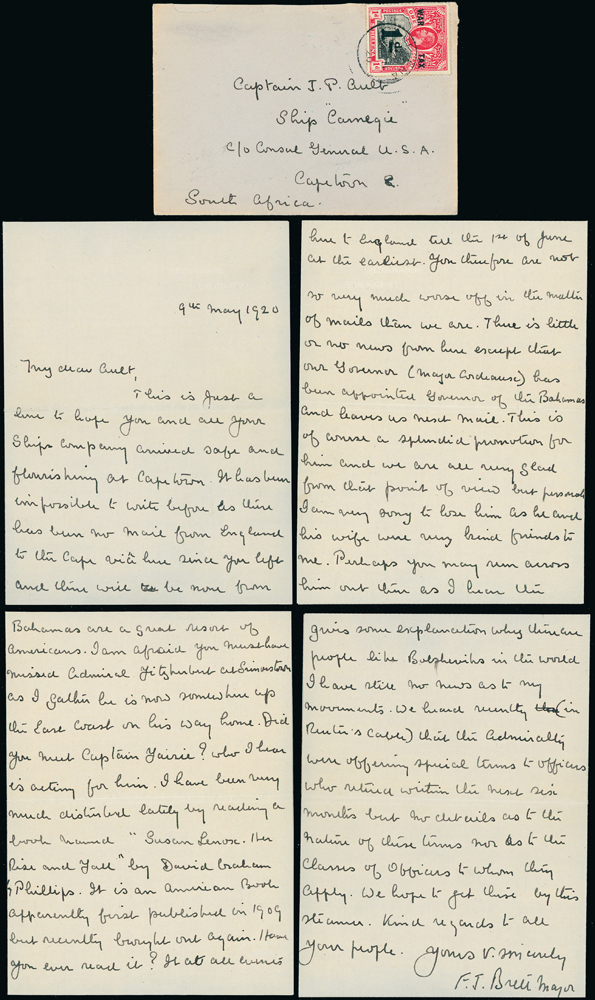 WAR
TAX
1d
Captain J. P. Ault
Ship "Carnegie"
c/o Consul General U. S. A.
Capetown
South Africa.
9th May 1920
My dear Ault,
This is just a
line to hope you and all your
Ships company arrived safe and
flourishing at Capetown. It has been
impossible to write before as there
has been no mail from England
to the Cape viâ here since you left
and there will be none from
here to England till the 1st of June
at the earliest. You therefore are not
so very much worse off in the matter
of mails than we are. There is little
or no news from here except that
our Governor (Major Cordeaux) has
been appointed Governor of the Bahamas
and leaves us next mail. This is
of course a splendid promotion for
him and we are all very glad
from that point of view but
I am very sorry to lose him as he and
his wife were very kind friends to
me. Perhaps you may run across
him out there as I hear the
Bahamas are a great resort of
Americans. I am afraid you must have
missed Admiral Fitzherbert at Simonstown
as I gather he is now somewhere up
the East Coast on his way home. Did
you meet Captain ? who I hear
is acting for him. I have been very
much disturbed lately by reading a
book named "Susan Lenox. Her
Rise and Fall" by David Graham
Phillips. It is an American Book
apparently first published in 1909
but recently brought out again. Have
you ever read it? It at all events
gives some explanation why there are
people like Bolsheviks in the world
I have still no news as to my
movements. We heard recently (in
Reuter's cables) that the Admiralty
were offering special terms to officers
who retired within the next six
months but no details as to the
nature of these terms nor as to the
Classes of Officers to whom they
apply. We hope to get these by this
steamer. Kind regards to all
your people. Yours v. sincerely
F. J. Brett Major